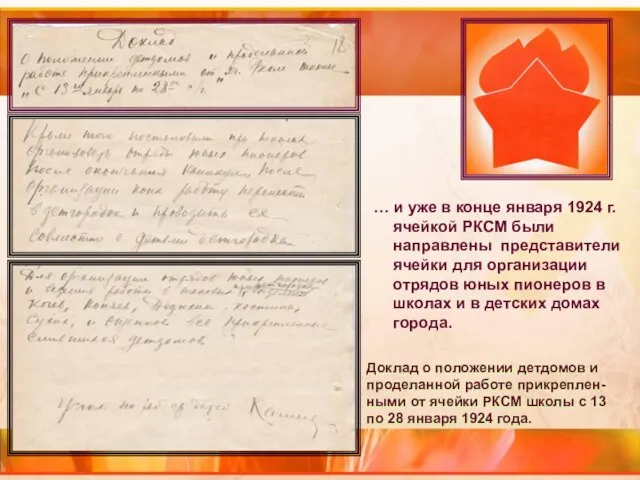 Доклад 12
О положении детдомов и проделанной
работе прикрепленными от яч. Рксм школы
"С 13 го января по 28 ое с/г.
Кроме того постановили при школах
организовать отряды юных пионеров
После окончания каникул. После
организации коих работу перенести
в детгородок и проводить ее
совместно с детьми детгородка
Для организации отрядов юных пионеров
и ведения работы в таковых прикреплены
и все прикрепленные
детдомов
… и уже в конце января 1924 г.
ячейкой РКСМ были
направлены представители
ячейки для организации
отрядов юных пионеров в
школах и в детских домах
города.
Доклад о положении детдомов и
проделанной работе прикреплен-
ными от ячейки РКСМ школы с 13
по 28 января 1924 года.